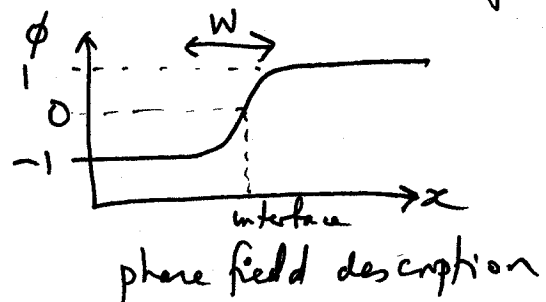 ϕ
W
1
0
-1
x
interface
phase field description